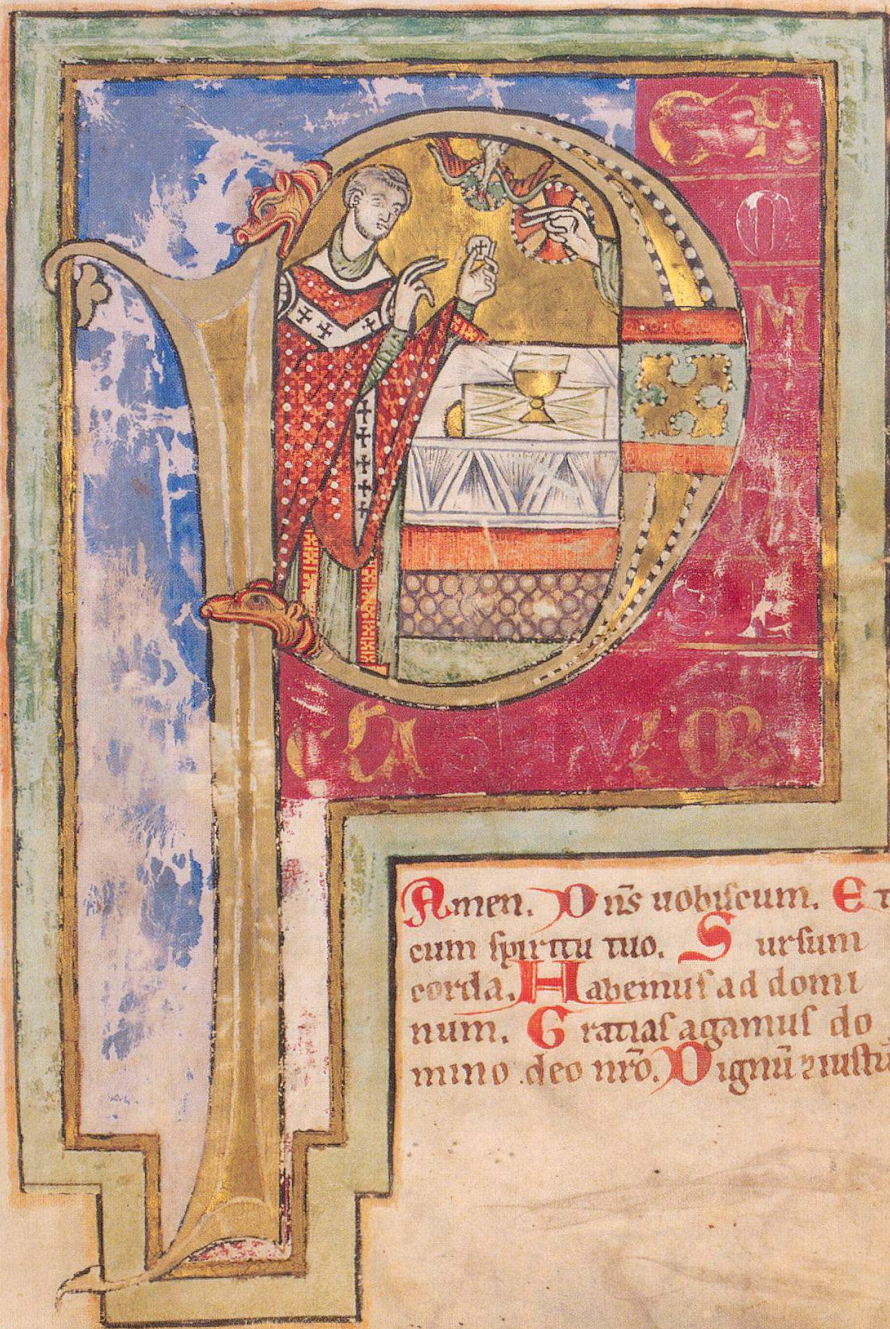 P
ER
O
M
SE
Amen. Dn̄s uobiſcum. Et
cum ſpiritu tuo. Surſum
corda. Habemuſ ad domi
num. Gratiaſ agamuſ do
mino deo nr̄o. Dignū ⁊ iuſtū